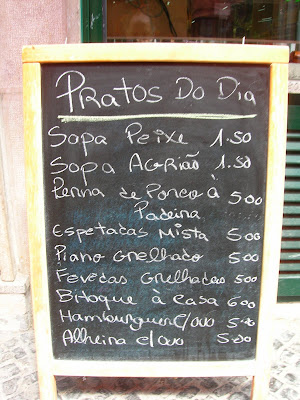 Pratos Do Dia
Sopa Peixe 1.50
Sopa Agrião 1.50
Perna de Porco à 500
Padeira
Espetadas Mista 500
Piano Grelhado 500
Fevedas Grelhadas 500
Bitoque à Casa 600
Hamburguer C/ovo 5.00
Alheira c/ovo 5.00